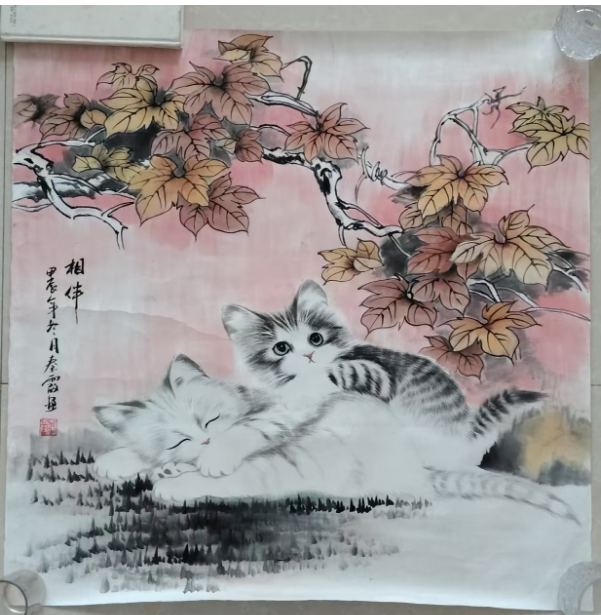 相伴
甲辰年冬月秦霞画